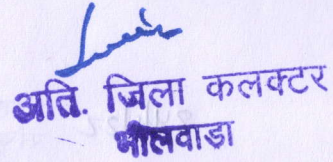 अति. जिला कलक्टर
भीलवाडा